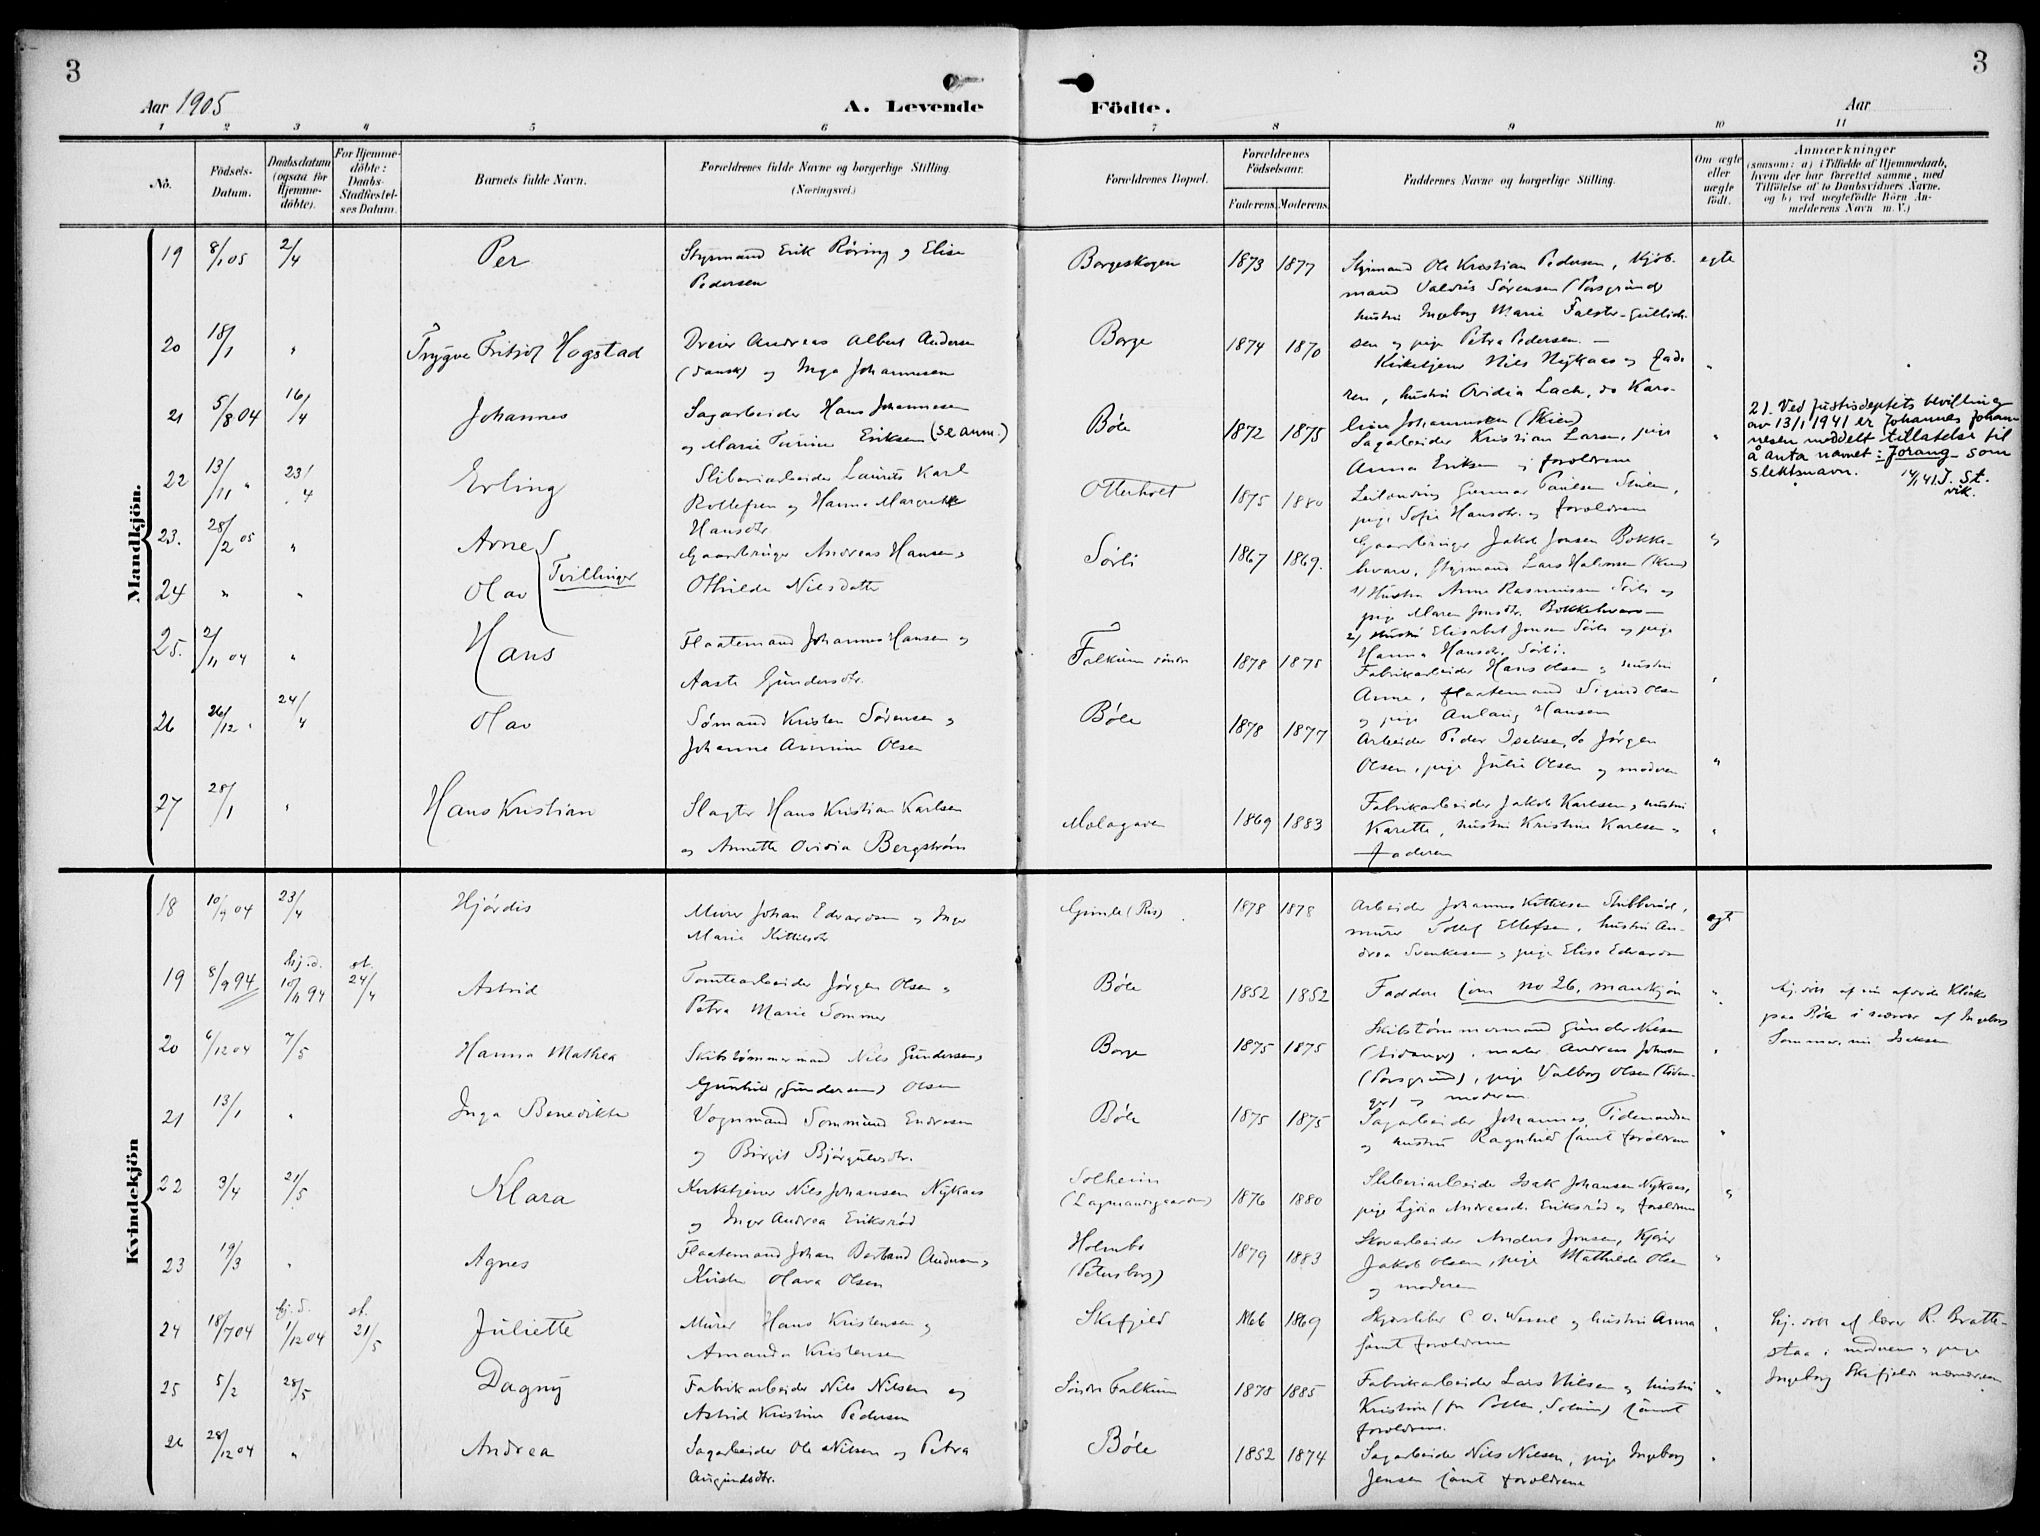 3
3
Aar 1905
A. Levende
Födte.
Aar
1 2 3 4 5 6 7 8 9 10 11
No.
Födsels-
Datum.
Daabsdatum
(ogsaa for
Hjemme-
döbte).
For Hjemme-
döbte:
Daabs-
Stadfæstel-
ses Datum.
Barnets fulde Navn.
Forældrenes fulde Navne og borgerlige Stilling.
(Næringsvei.)
Forældrenes Bopæl.
Forældrenes
Födselsaar.
Faderens. Moderens.
Faddernes Navne og borgerlige Stilling.
Om ægte
eller
uægte
födt.
Anmærkninger
(saasom: a) i Tilfælde af Hjemmedaab,
hvem der har forrettet samme, med
Tilföielse af to Daabsvidners Navne.
og b) ved uægtefödte Börn An-
melderens Navn m. V.)
Mandkjön.
19 8/1 05 2/4 Per
Styrmand Erik Röring og Elise
Pedersen
Borgeskogen 1873 1877
Styrmand Ole Kristian Pedersen, Kjöb-
mand Valdris Sörensen (Porsgrund)
hustru Ingeborg Marie Falster-Gullich-
sen og pige Petra Pedersen. —
egte
20 18/1 " Trygve Fritjof Hogstad
Dreier Andreas Albert Andersen
(dansk) og Inga Johannesen
Borge 1874 1870
Kirketjener Nils Nykaas og fade-
ren, hustru Ovidia Lach, do Karo-
line Johannesen (Skien)
"
21 5/8 04 16/4 Johannes
Sagarbeider Hans Johannesen
og Marie Turine Eriksen (se anm.)
Böle 1872 1875
Sagarbeider Kristian Larsen, pige
Anna Eriksen og foreldrene
"
21. Ved Justisdeptets bevilling
av 13/1 1941 er Johannes Johan-
nesen meddelt tillatelse til
å anta navnet: Jorang som
slektsnavn. 14/1 41. J. St.
vik.
22 13/11 " 23/4 Erling
Sliberiarbeider Laurits Karl
Rollefsen og Hanna Margrethe
Hansdtr
Otterholt 1875 1880
Leilending Gunnar Paulsen
pige Sofie Hansdtr. og foreldrene
23. 28/2 05 " Arne
Tvillinger
Gaardbruger Andreas Hansen og
Othilde Nilsdatter
Sörli 1867 1869.
Gaardbruger Jakob Jensen Bokke-
hvare, Styrmand Lars Halvorsen (Skien)
"
24 " " Olav
1/ Hustru Anne Rasmussen Sörli og
pige Maren Jensdtr. Bokkehvare
2/ Hustru Elisabet Jensen Sörli og pige
Hanna Hansdtr. Sörli.
25. 2/11 04 " Hans
Flaatemand Johannes Hansen og
Aaste Gundersdtr.
Falkum söndre 1878 1875
Fabrikarbeider Hans Olsen og hustru
Anne, flaatemand Sigurd Olsen
og pige Anlaug Hansen
"
26 26/12 " 24/4 Olav
Sömand Kristen Sörensen og
Johanne Amunine Olsen
Böle 1878 1877
Arbeider Peder Iseksen, do Jörgen
Olsen, pige Julie Olsen og moderen
"
27 28/1 " Hans Kristian
Slagter Hans Kristian Karlsen
og Annette Ovidia Bergström
1869 1883
Fabrikarbeider Jakob Karlsen og hustru
Karette, hustru Kristine Karlsen og
faderen
"
Kvindekjön
18 10/9 04 23/4 Hjördis
Murer Johan Edvardsen og Inger
Marie Kittilsdtr
Grimle (Ris) 1878 1878
Arbeider Johannes Kittilsen Stubberöd,
murer Tollef Ellefsen, hustru An-
drea Svenkesen og pige Elise Edvardsen
egte
19 8/9 94 hj.d. 10/11 94 st. 24/4 Astrid
Tomtearbeider Jörgen Olsen og
Petra Marie Sommer
Böle 1852 1852
Faddere som no 26, mankjön
"
hj. döbt af nu afdöde Klöcker
paa Böle i nærvær af Ingeborg
Sommer, Iseksen
20 6/12 04 7/5 Hanna Mathea
Skibstömmermand Nils Gundersen og
Gunhild (Gundersen) Olsen
Borge 1875 1875
Skibstömmermand Gunder Nilsen
(Eidanger), maler Andreas Johnsen
(Porsgrund), pige Valborg Olsen (Eidan-
ger) og moderen
"
21 13/1 " Inga Benedikte
Vognmand Sommund Endresen
og Birgit Björgulvsdtr.
Böle 1875 1875
Sagarbeider Johannes Tidemandsen
og hustru Ragnhild samt foreldrene
"
22 3/4 21/5 Klara
Kirketjener Nils Johansen Nykaas
og Inger Andrea Eriksröd
Solheim
(Lagmandsgaarden) 1876 1880
Sliberiarbeider Isak Johansen Nykaas,
pige Lydia Andreasdt. Eriksröd og foreldrene
"
23 19/3 " Agnes
Flaatemand Johan Bertrand Andersen og
Kirsten Olava Olsen
Holmbo
(Petersborg) 1879 1883
Skovarbeider Anders Jonsen, Kjörer
Jakob Olsen, pige Mathilde Olsen
og moderen
"
24 18/7 04 hj.d. 1/12 04 st. 21/5 Juliette
Murer Hans Kristensen og
Amanda Kristensen
Skifjeld 1866 1869
C. O. Wessel og hustru Anna
samt foreldrene
"
hj. döbt af lærer R. Bratte-
staa i moderens og pige
Ingeborg Skifjelds nærværelse
25 5/2 28/5 Dagny
Fabrikarbeider Nils Nilsen og
Astrid Kristine Pedersen
Söndre Falkum 1878 1885
Fabrikarbeider Lars Nilsen og hustru
Kristine samt
foreldrene.
"
26 28/12 04 " Andrea
Sagarbeider Ole Nilsen og Petra
Amundsdtr.
Böle 1852 1874
Sagarbeider Nils Nilsen, pige Ingeborg
Jensen samt foreldrene
"